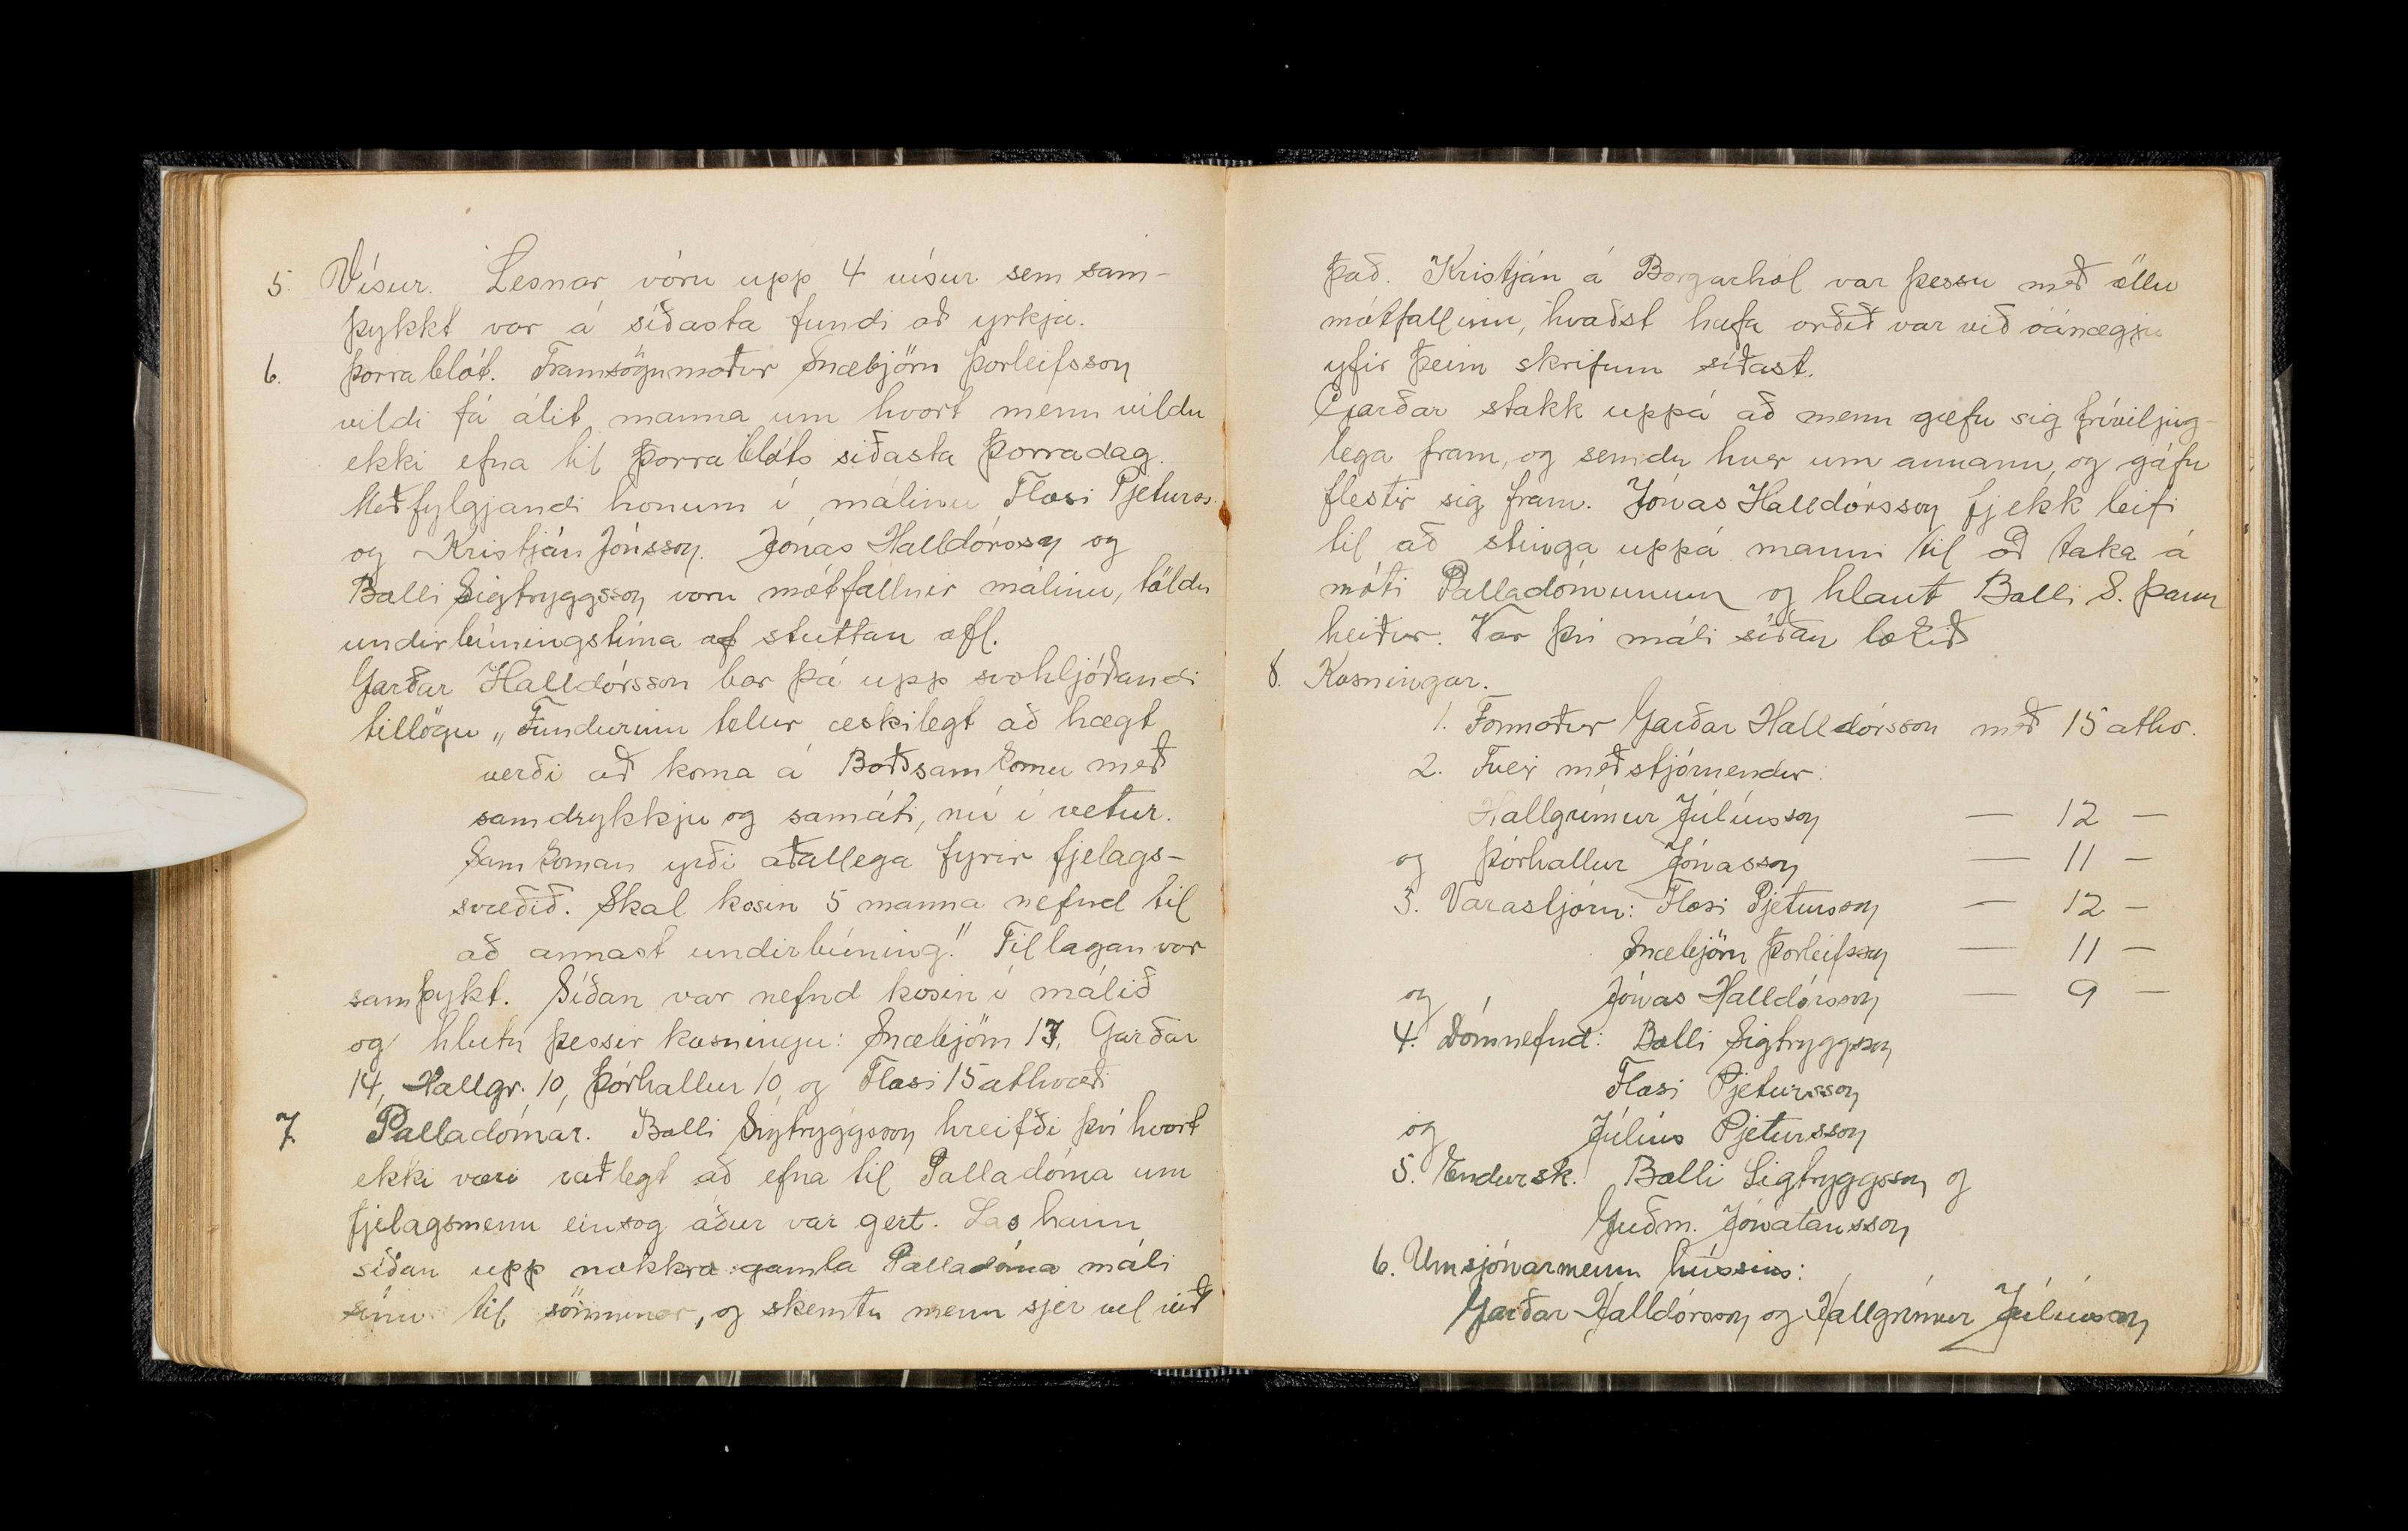 5. Vísur. Lesnar vóru upp 4 vísur sem sam-
þykkt var á síðasta fundi að yrkja.
6. Þorrablót. Framsögumaður Snæbjörn Þorleifsson
vildi fá álit manna um hvort menn vildu
ekki efna til Þorrablóts siðasta Þorradag.
Meðfylgjandi honum í málinu Flosi Pjeturss.
og Kristján Jónsson. Jónas Halldórsson og
Balli Sigtryggsson voru mótfallnir málinu, töldu
undirbúningstíma of stuttan ofl.
Garðar Halldórsson bar þá upp svohljóðandi
tillögu „Fundurinn telur æskilegt að hægt
verði að koma á Boðsamkomu með
samdrykkju og samáti, nú í vetur.
Samkoman yrði aðallega fyrir fjelags-
svæðið. Skal kosin 5 manna nefnd til
að annast undirbúning." Tillagan var
samþykt. Síðan var nefnd kosin í málið
og hlutu þessir kosningu: Snæbjörn 13, Garðar
14, Hallgr. 10, Þórhallur 10, og Flosi 15 athvæði
7. Palladómar. Balli Sigtryggsson hreifði því hvort
ekki væri ráðlegt að efna til Palladóma um
fjelagsmenn einsog áður var gert. Las hann
síðan upp nokkra gamla Palladóma máli
sínu til sönnunar, og skemtu menn sjer vel við
það. Kristján á Borgarhól var þessu með öllu
mótfallinn, kvaðst hafa orðið var við óánægju
yfir þeim skrifum síðast.
Garðar stakk uppá að menn gæfu sig fríviljug-
lega fram, og semdu hver um annann, og gáfu
flestir sig fram. Jónas Halldórsson fjekk leifi
til að stinga uppá manni til að taka á
móti Palladómunum og hlaut Balli S. þann
heiður. Var því máli síðan lokið
8. Kosningar.
1. Formaður Garðar Halldórsson með 15 athv.
2. Tveir meðstjórnendur:
Hallgrímur Júlíusson — 12 —
og Þórhallur Jónasson — 11 —
3. Varastjórn: Flosi Pjetursson — 12 —
Snæbjörn Þorleifsson — 11 —
og Jónas Halldórsson — 9 —
4. Dómnefnd: Balli Sigtryggsson
Flosi Pjetursson
og Júlíus Pjetursson
5. Endursk. Balli Sigtryggsson og
Guðm. Jónatansson
6. Umsjónarmenn hússins:
Garðar Halldórsson og Hallgrímur Júlíusson